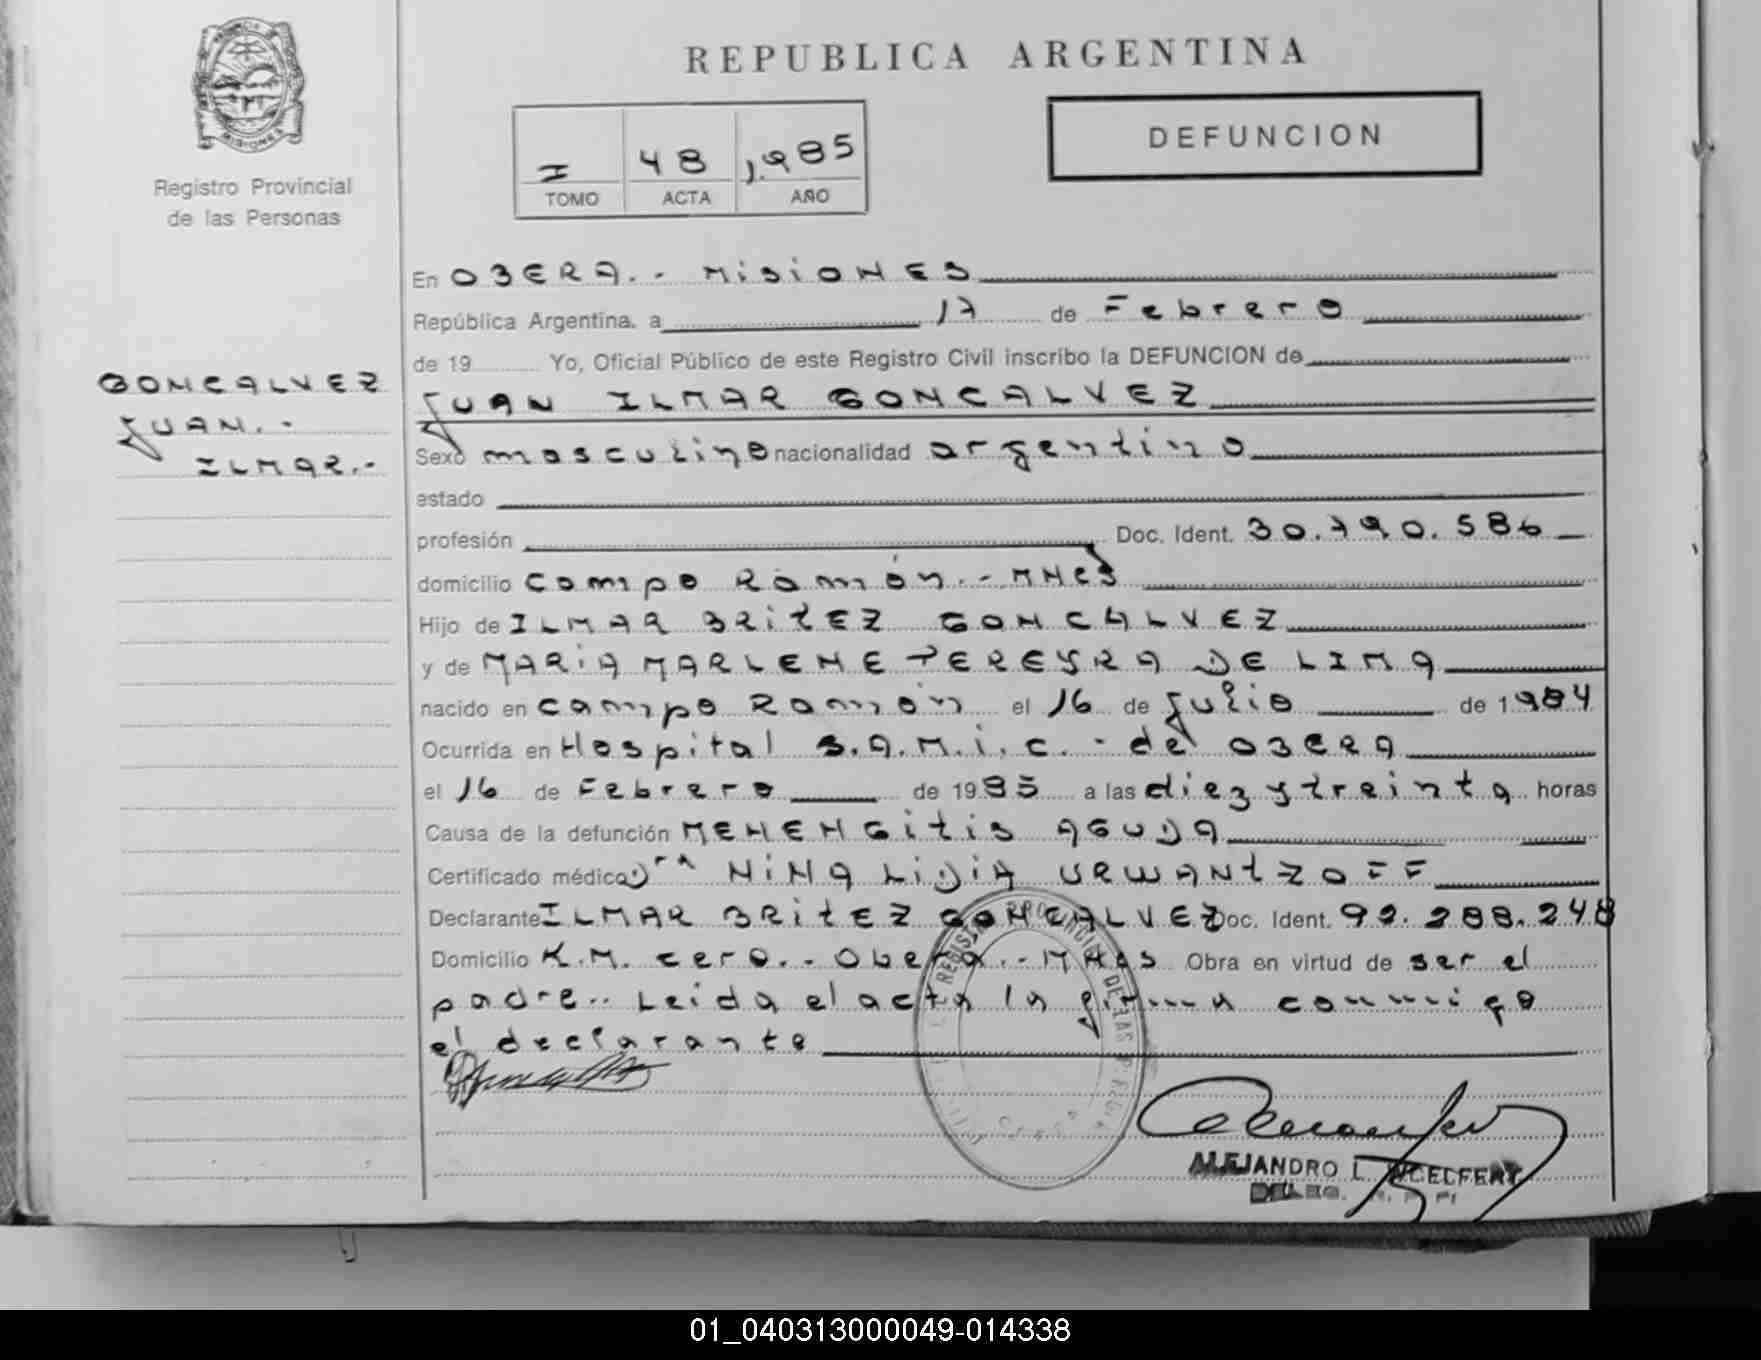 REPUBLICA ARGENTINA
DEFUNCION
I 48 1.985
TOMO ACTA AÑO
MISIONES
Registro Provincial
de las Personas
GONCALVEZ
JUAN.-
ILMAR.-
En OBERA.- MisiONES
República Argentina, a 17 de Febrero
de 19 Yo, Oficial Público de este Registro Civil inscribo la DEFUNCION de
JUAN ILMAR GONCALVEZ
Sexo masculino nacionalidad argentino
estado
profesión Doc. Ident. 30.790.586
domicilio campo Ramón.- MNES
Hijo de ILMAR BRitEZ GONCALVEZ
y de MARiA MARLENE PEREYRA DE LIMA
nacido en campo Ramón el 16 de julio de 1984
Ocurrida en Hospital S.A.M.i.c.- de OBERA
el 16 de Febrero de 1985 a las diez y treinta horas
Causa de la defunción MENENGitis AGUDA
Certificado médico Dra NiNA LiDiA URWANtZOFF
Declarante ILMAR BRitEZ GONCALVEZ Doc. Ident. 92.288.248
Domicilio K.M. cero.- Obera.- MNES Obra en virtud de ser el
padre.. Leida el acta la firma conmigo
el declarante
REGISTRO PROVINCIAL DE LAS PERSONAS
ALEJANDRO L.
01_040313000049-014338